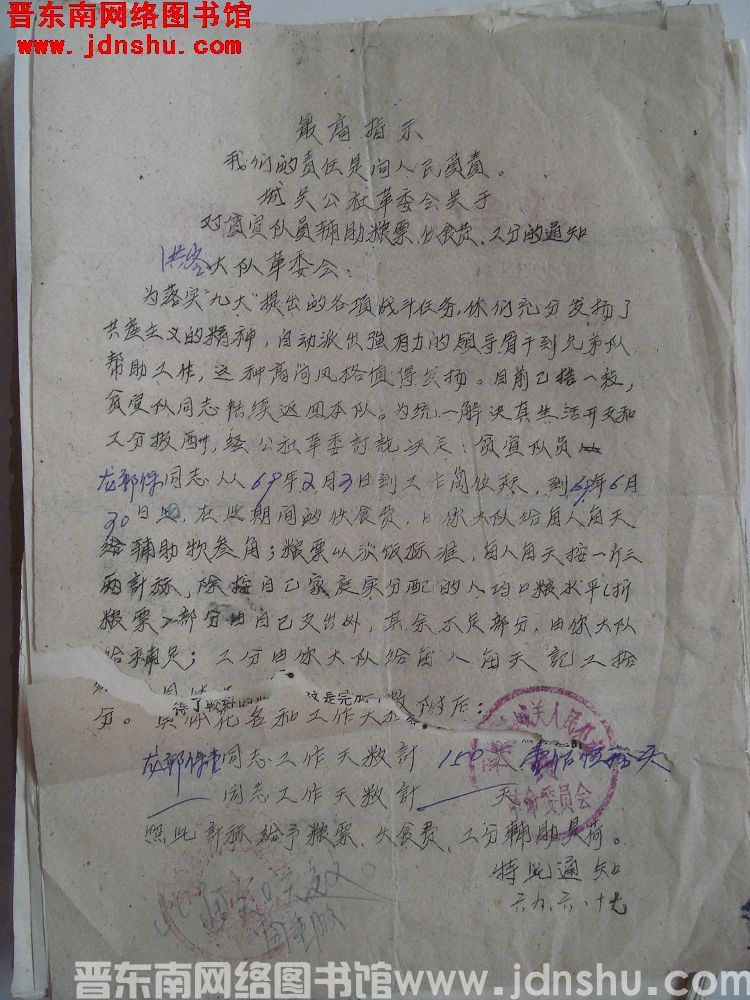 晋东南网络图书馆
www.jdnshu.com
最高指示
我们的责任是向人民负责。
城关公社革委会关于
对贫宣队员辅助粮票、伙食费、工分的通知
大队革委会：
为落实"九大"提出的各项战斗任务，你们充分发扬了
共产主义的精神，自动派出强有力的领导骨干到兄弟队
帮助工作，这种高尚风格值得发扬。目前已告一段，
贫宣队同志陆续返回本队。为统一解决其生活开支和
工分报酬，经公社革委讨论决定：贫宣队员
同志从69年2月3日到工作岗位起，到69年6月
30日止，在此期间的伙食费，由你大队给每人每天
给辅助款叁角；粮票以派饭标准，每人每天按一斤三
两计称，除按自己家庭实分配的人均口粮水平(折
粮票)部分由自己支出外，其余不足部分，由你大队
给补足；工分由你大队给每人每天记工拾
分。具体花名和工作天数附后：
同志工作天数计 150天
同志工作天数计 天
照此计称给予粮票、伙食费、工分辅助是荷。
特此通知
六九.六.十
城关人民公社
革命委员会
晋东南网络图书馆www.jdnshu.com